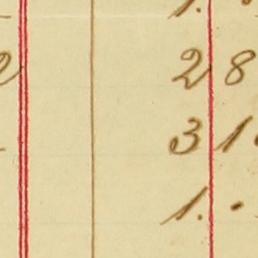 2 8
3 1
1. .